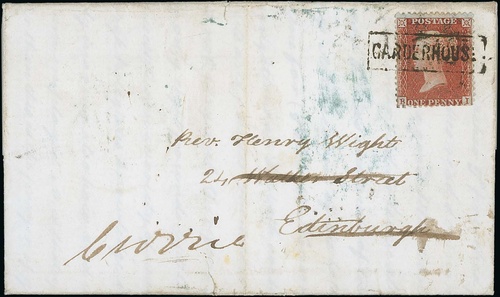 POSTAGE
GARDERHOUSE
ONE PENNY
Rev. Henry Wight
24 Walker Street
Edinburgh
Currie